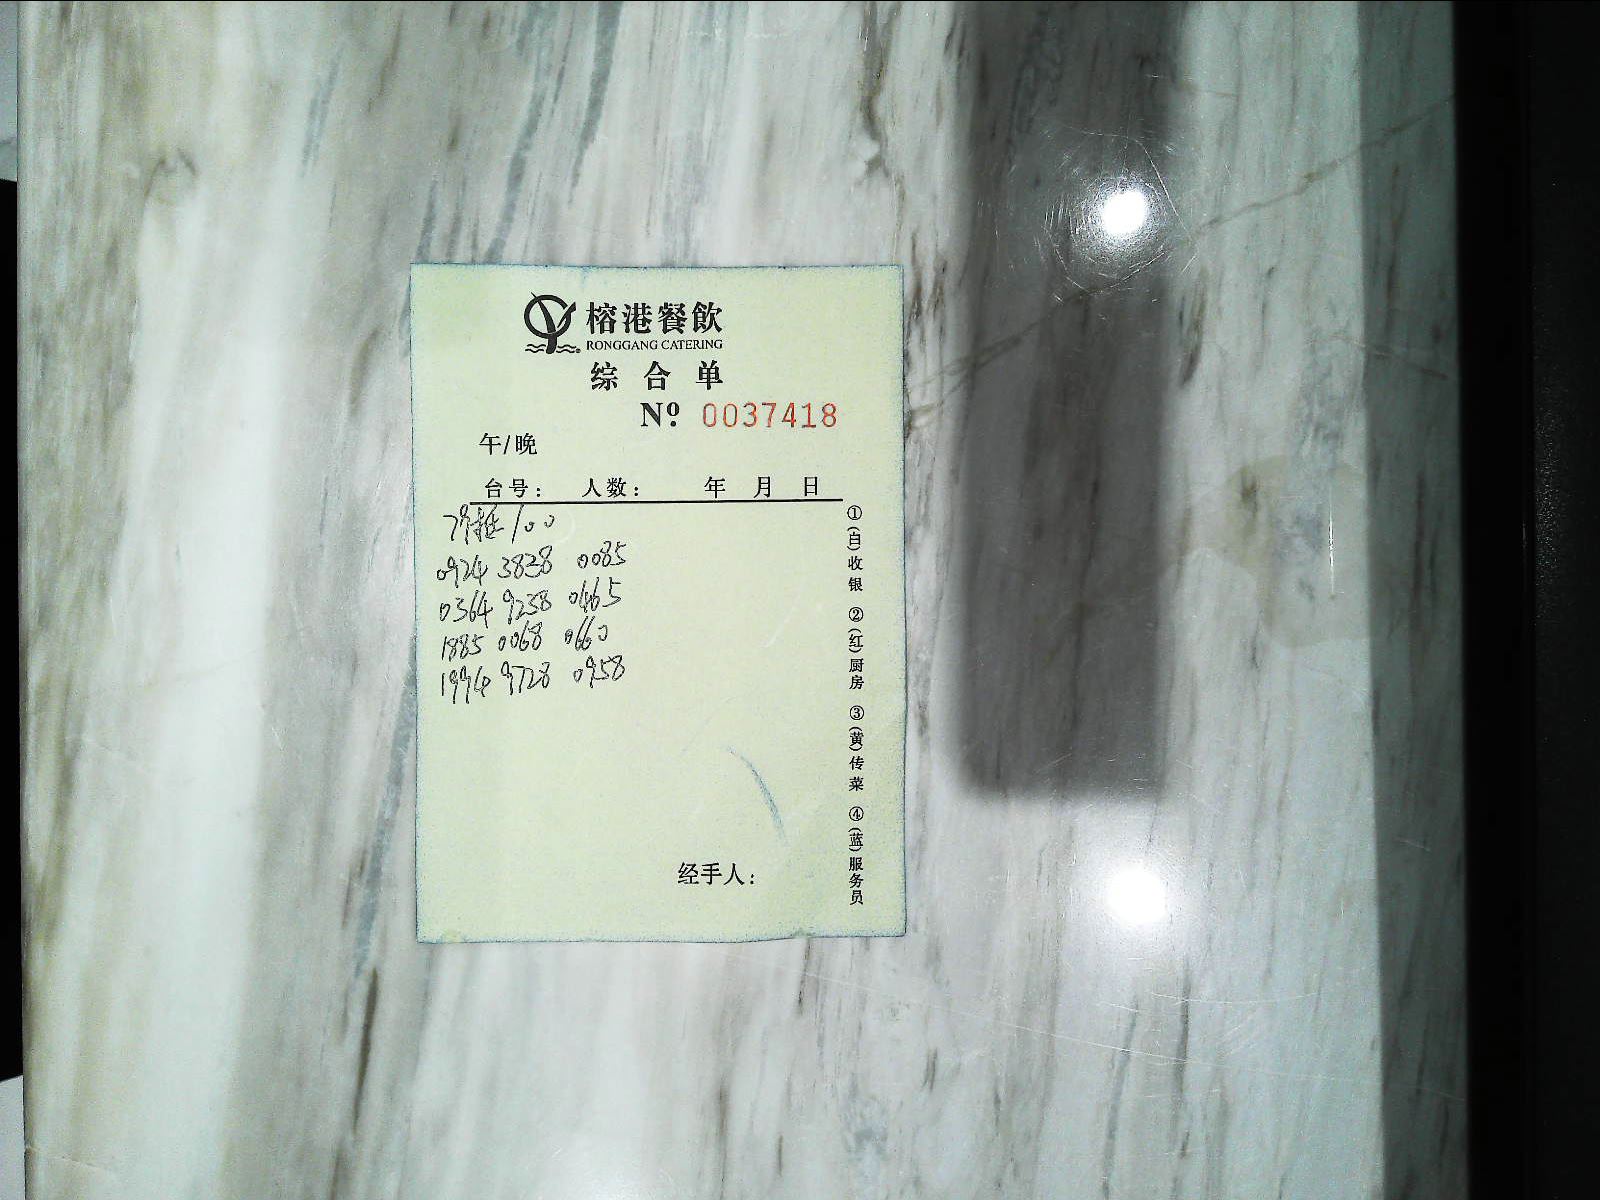 榕港餐飲
RONGGANG CATERING
综合单
Nº 0037418
午/晚
台号： 人数： 年 月 日
抵 100
0924 3828 0085
0364 9258 0465
1885 0068 0660
1994 9728 0958
经手人：
①(白)收银 ②(红)厨房 ③(黄)传菜 ④(蓝)服务员